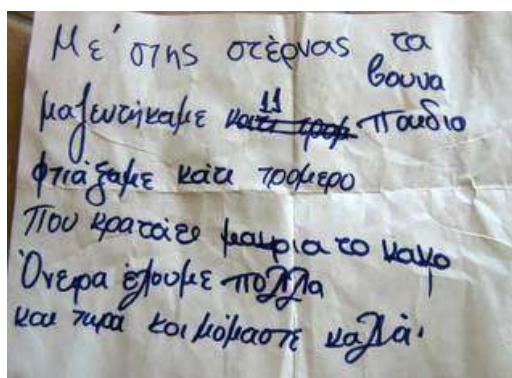 Με' στης στέρνας τα
βουνα
μαζευτήκαμε 11 παιδια
φτιάξαμε κάτι τρομερο
Που κρατάει μακρια το κακο
Όνειρα έχουμε πολλα
και τωρα κοιμόμαστε καλλά.